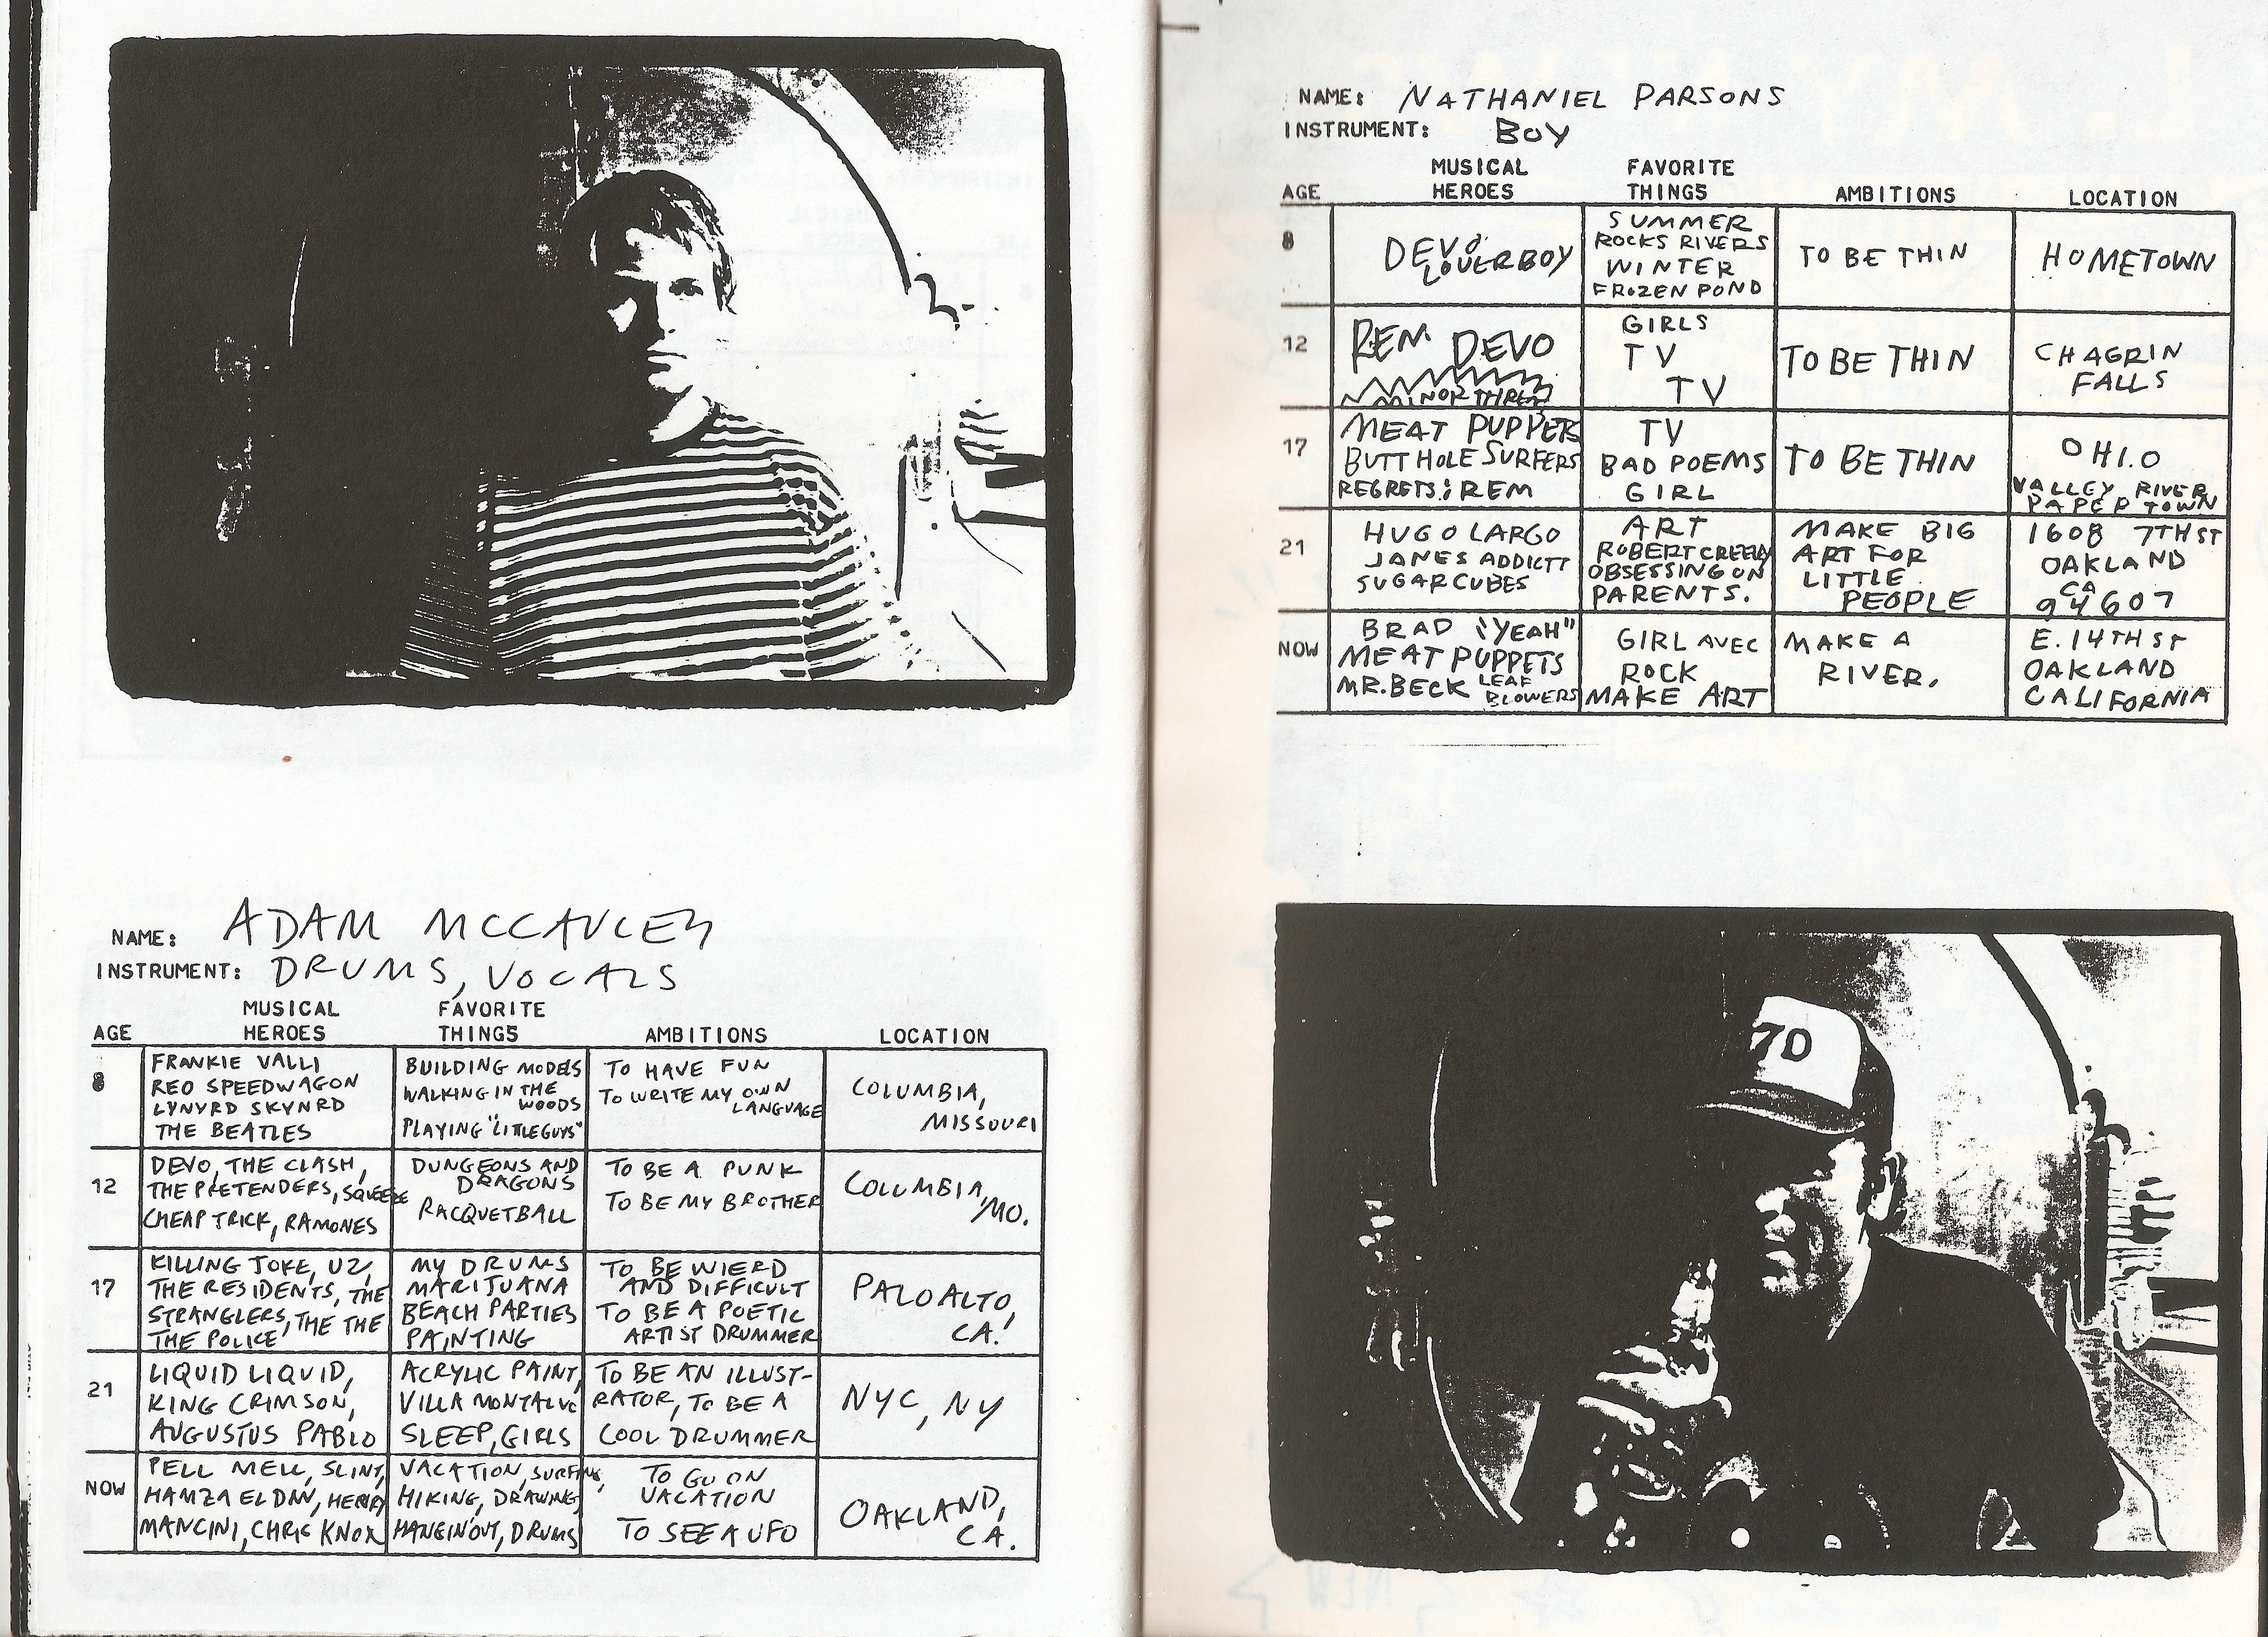 NAME: ADAM MCCAULEY
INSTRUMENT: DRUMS, VOCALS
AGE MUSICAL HEROES FAVORITE THINGS AMBITIONS LOCATION
8
FRANKIE VALLI
REO SPEEDWAGON
LYNYRD SKYNRD
THE BEATLES
BUILDING MODELS
WALKING IN THE
WOODS
PLAYING "LITTLE GUYS"
TO HAVE FUN
TO WRITE MY OWN
LANGUAGE
COLUMBIA,
MISSOURI
12
DEVO, THE CLASH,
THE PRETENDERS, SQUEEZE
CHEAP TRICK, RAMONES
DUNGEONS AND
DRAGONS
RACQUETBALL
TO BE A PUNK
TO BE MY BROTHER
COLUMBIA,
MO.
17
KILLING JOKE, U2,
THE RESIDENTS, THE
STRANGLERS, THE THE
THE POLICE
MY DRUMS
MARIJUANA
BEACH PARTIES
PAINTING
TO BE WIERD
AND DIFFICULT
TO BE A POETIC
ARTIST DRUMMER
PALO ALTO,
CA.
21
LIQUID LIQUID,
KING CRIMSON,
AUGUSTUS PABLO
ACRYLIC PAINT,
VILLA MONTALVO
SLEEP, GIRLS
TO BE AN ILLUST-
RATOR, TO BE A
COOL DRUMMER
NYC, NY
NOW
PELL MELL, SLINT,
HAMZA EL DIN, HENRY
MANCINI, CHRIS KNOX
VACATION, SURFING,
HIKING, DRAWING,
HANGIN' OUT, DRUMS
TO GO ON
VACATION
TO SEE A UFO
OAKLAND,
CA.
NAME: NATHANIEL PARSONS
INSTRUMENT: BOY
AGE MUSICAL HEROES FAVORITE THINGS AMBITIONS LOCATION
8
DEVO
LOVERBOY
SUMMER
ROCKS RIVERS
WINTER
FROZEN POND
TO BE THIN
HOMETOWN
12
REM DEVO
MINOR THREAT
GIRLS
TV
TV
TO BE THIN
CHAGRIN
FALLS
17
MEAT PUPPETS
BUTTHOLE SURFERS
REGRETS: REM
TV
BAD POEMS
GIRL
TO BE THIN
OHI.O
VALLEY RIVER
PAPER TOWN
21
HUGO LARGO
JANES ADDICTT
SUGARCUBES
ART
ROBERT CREELEY
OBSESSING ON
PARENTS.
MAKE BIG
ART FOR
LITTLE
PEOPLE
1608 7TH ST
OAKLAND
CA
94607
NOW
BRAD "YEAH"
MEAT PUPPETS
MR. BECK LEAF
BLOWERS
GIRL AVEC
ROCK
MAKE ART
MAKE A
RIVER.
E. 14TH ST
OAKLAND
CALIFORNIA
70